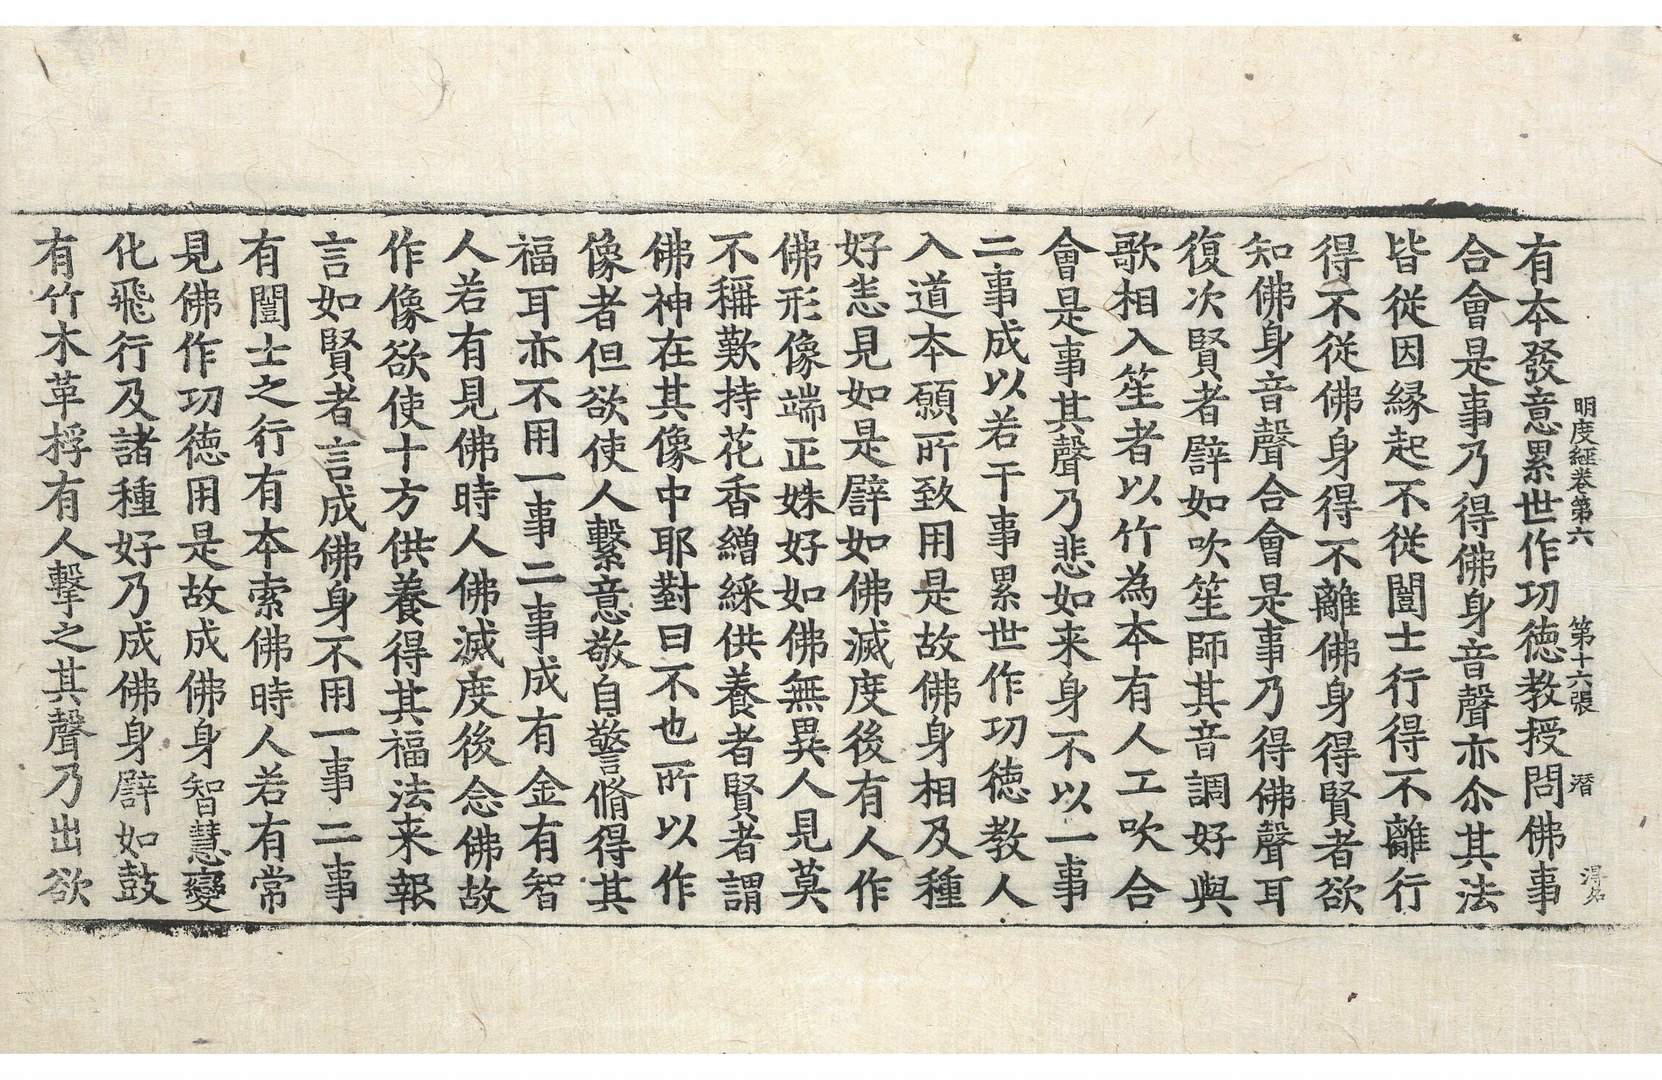 明度經卷第六 第十六張 潜 得名
有本發意累世作功德教授問佛事
合會是事乃得佛身音聲亦尒其法
皆從因縁起不從闓士行得不離行
得不從佛身得不離佛身得賢者欲
知佛身音聲合會是事乃得佛聲耳
復次賢者譬如吹笙師其音調好與
歌相入笙者以竹為本有人工吹合
會是事其聲乃悲如来身不以一事
二事成以若干事累世作功德教人
入道本願所致用是故佛身相及種
好悉見如是譬如佛滅度後有人作
佛形像端正姝好如佛無異人見莫
不稱歎持花香繒綵供養者賢者謂
佛神在其像中耶對曰不也所以作
像者但欲使人繫意敬自警脩得其
福耳亦不用一事二事成有金有智
人若有見佛時人佛滅度後念佛故
作像欲使十方供養得其福法来報
言如賢者言成佛身不用一事二事
有闓士之行有本索佛時人若有常
見佛作功德用是故成佛身智慧變
化飛行及諸種好乃成佛身譬如鼓
有竹木革桴有人擊之其聲乃出欲